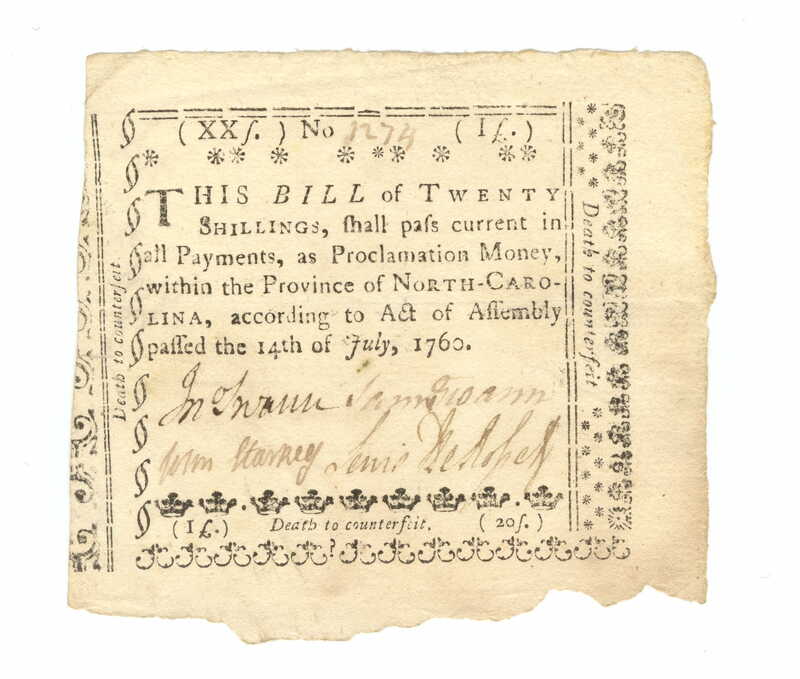 (XXſ.) No 1274 (I£.)
THIS BILL of TWENTY
SHILLINGS, ſhall paſs current in
all Payments, as Proclamation Money,
within the Province of NORTH-CARO-
LINA, according to Act of Aſſembly
paſſed the 14th of July, 1760.
Jnº Swann Sam Swann
John Starkey Lewis DeRoſſet
(I£.) Death to counterfeit. (20ſ.)
Death to counterfeit.
Death to counterfeit